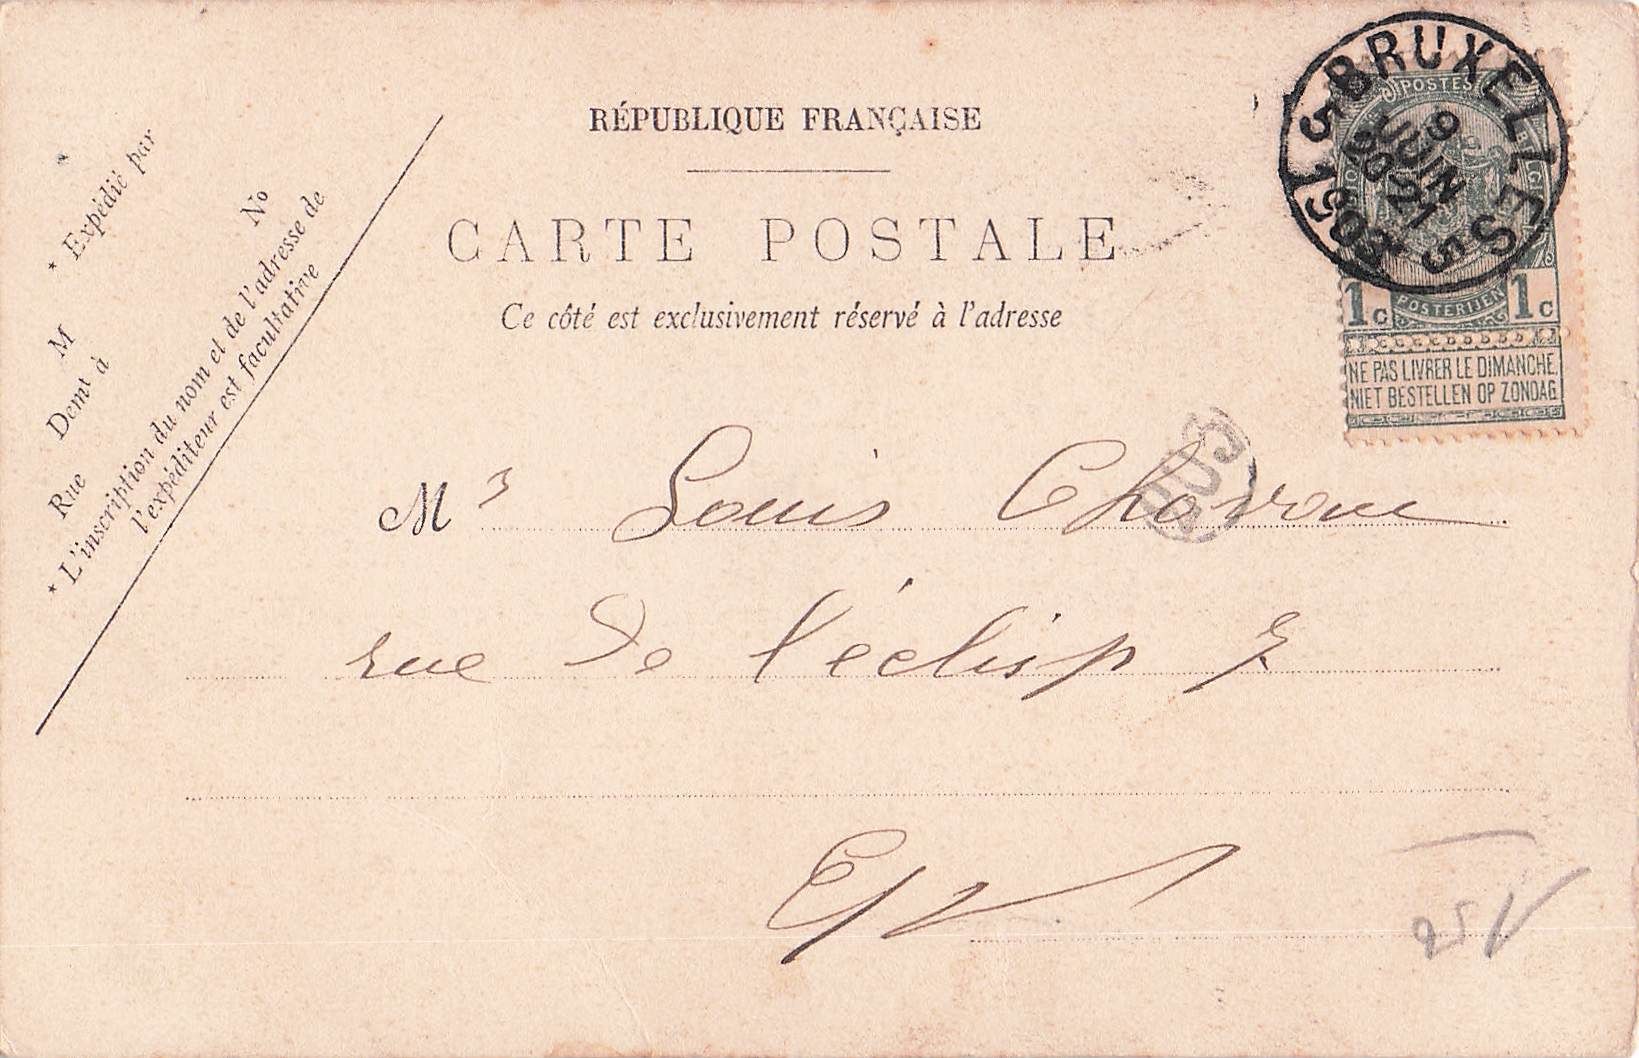 RÉPUBLIQUE FRANÇAISE
CARTE POSTALE
Ce côté est exclusivement réservé à l'adresse
* Expédié par
M
Demt à
Rue
No
* L'inscription du nom et de l'adresse de
l'expéditeur est facultative
BRUXELLES 5
9
JUIN
20 21
1904
5 S
POSTES
1c POSTERIJEN 1c
NE PAS LIVRER LE DIMANCHE.
NIET BESTELLEN OP ZONDAG
Mr Louis
rue de l'éclisp 7
E/V